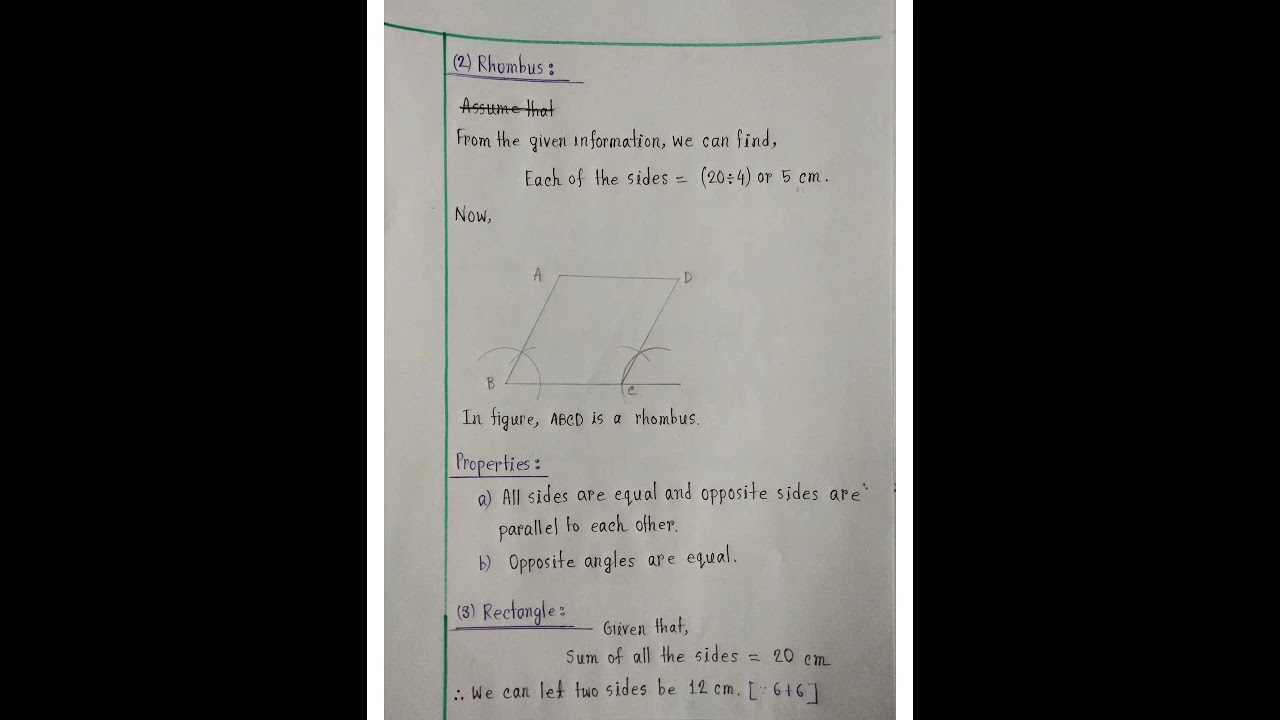 (2) Rhombus:
Assume that
From the given information, we can find,
Each of the sides = (20÷4) or 5 cm.
Now,
A D
B C
In figure, ABCD is a rhombus.
Properties:
a) All sides are equal and opposite sides are
parallel to each other.
b) Opposite angles are equal.
(3) Rectangle:
Given that,
Sum of all the sides = 20 cm
∴ We can let two sides be 12 cm. [∵ 6+6]